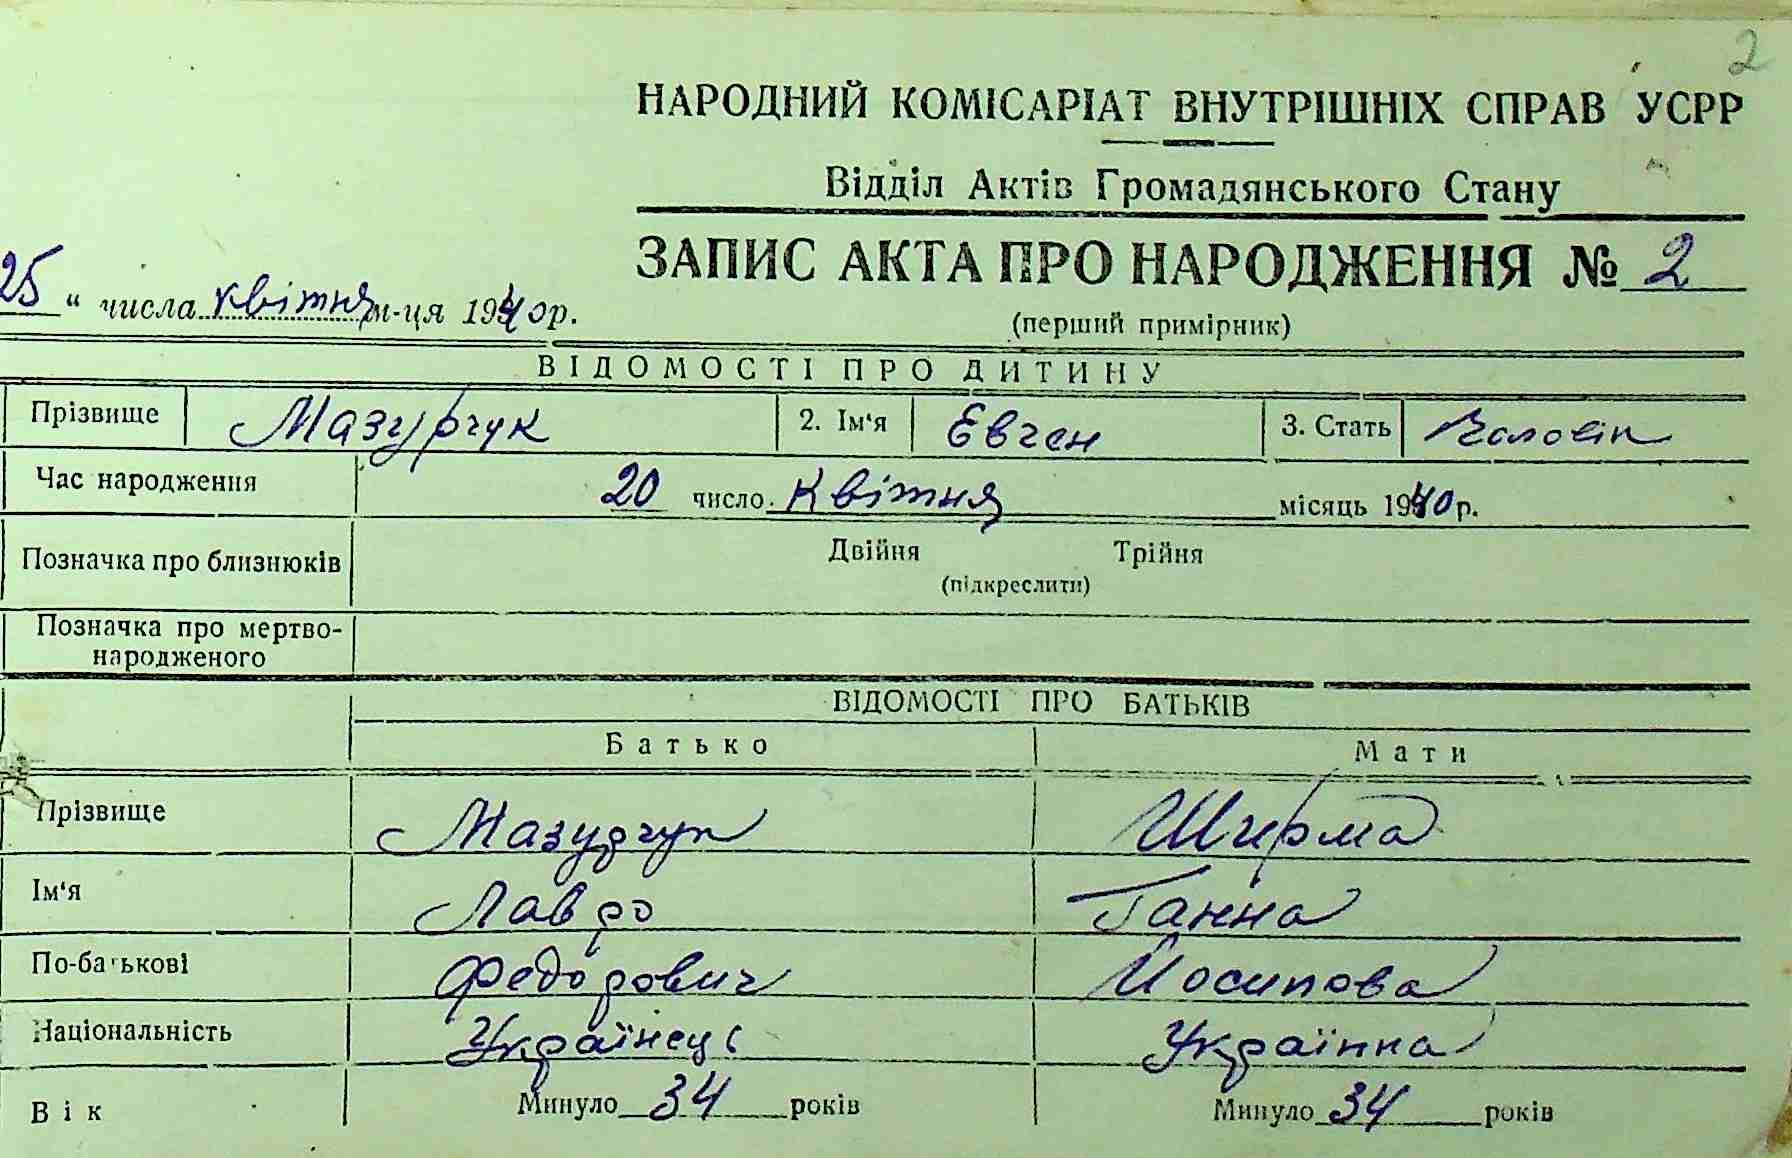 2
НАРОДНИЙ КОМІСАРІАТ ВНУТРІШНІХ СПРАВ УСРР
Відділ Актів Громадянського Стану
ЗАПИС АКТА ПРО НАРОДЖЕННЯ № 2
25 " числа квітня м-ця 1940 р.
(перший примірник)
ВІДОМОСТІ ПРО ДИТИНУ
Прізвище Мазурчук 2. Ім'я Евген 3. Стать Чоловік
Час народження 20 число квітня місяць 1940 р.
Позначка про близнюків Двійня Трійня
(підкреслити)
Позначка про мертво-
народженого
ВІДОМОСТІ ПРО БАТЬКІВ
Батько Мати
Прізвище Мазурчук Ширма
Ім'я Лавро Ганна
По-батькові Федорович Йосипова
Національність Українець Українка
Вік Минуло 34 років Минуло 34 років